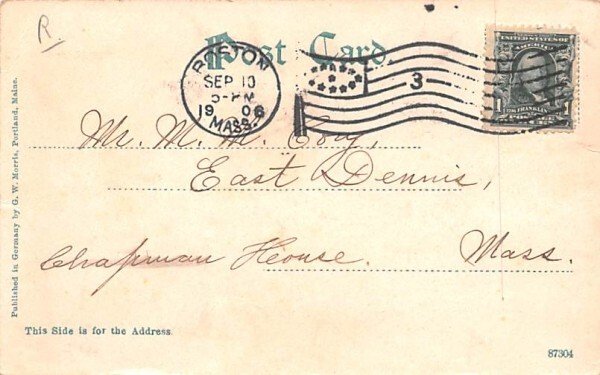 R
Post Card.
BOSTON
SEP 10
5-PM
1906
MASS.
3
UNITED STATES OF AMERICA
1 FRANKLIN 1
Mr. M. M.
East Dennis,
Chapman House. Mass.
Published in Germany by G. W. Morris, Portland, Maine.
This Side is for the Address.
87304